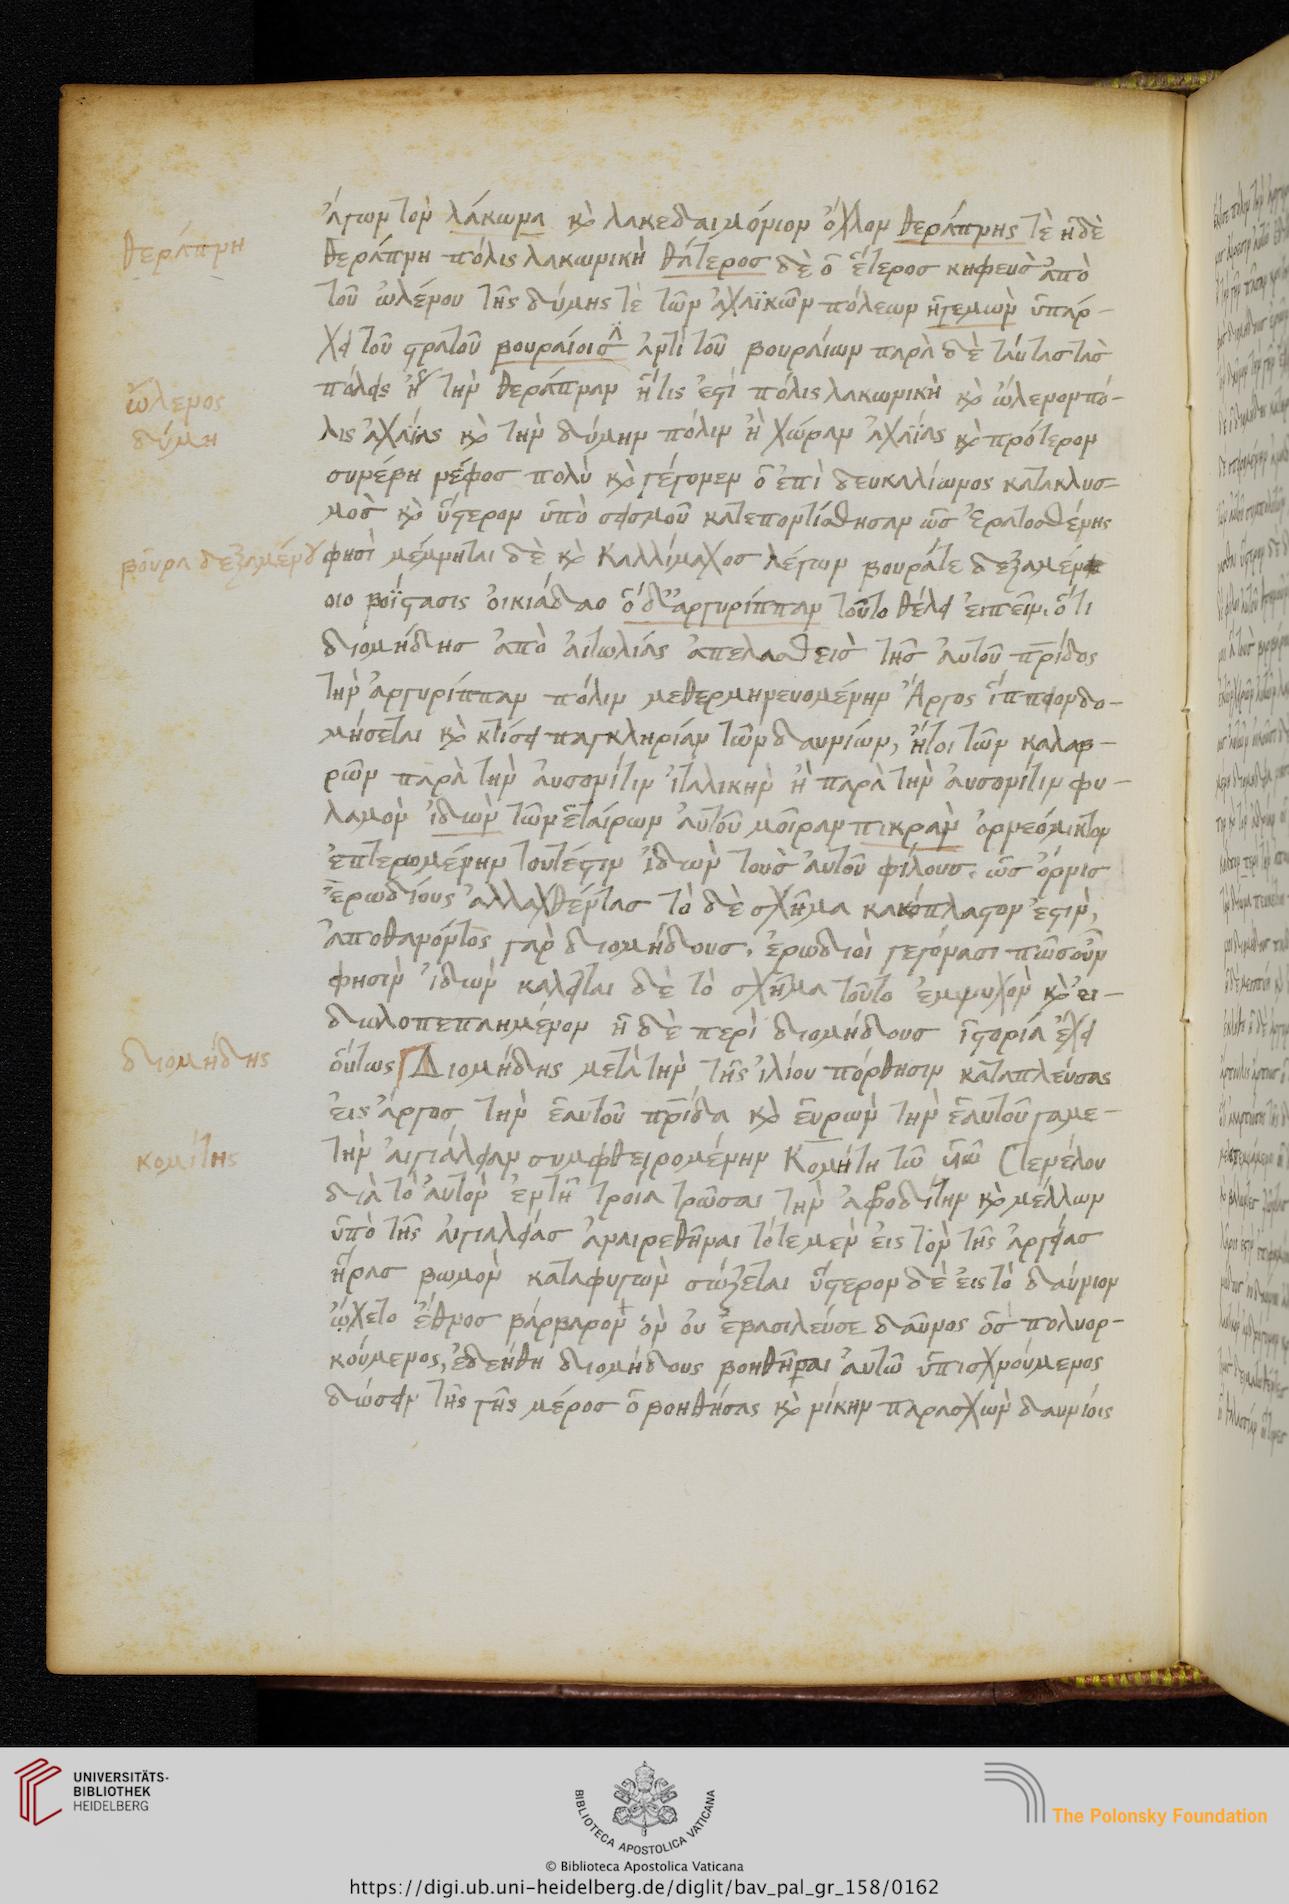 θεράπνη
ὤλενος
δύμη
βοῦρα δεξαμένου
διομήδης
κομίτης
ἄγων τὸν λάκωνα κὶ λακεδαιμόνιον ὄχλον θεράπνης τὲ ἢ δὲ
θεράπνη πόλις λακωνικὴ θάτερος δὲ ὁ ἕτερος κηφεὺς ἀπὸ
τοῦ ὠλένου τῆς δύμης τὲ τῶν ἀχαϊκῶν πόλεων ἡγεμὼν ὑπάρ-
χει τοῦ στρατοῦ βουραίοισ ἀντὶ τοῦ βουραίων παρὰ δὲ ταύτας τὰς
πόλεις ἤγουν τὴν θεράπναν ἥτις ἐστὶ πόλις λακωνικὴ κὶ ὤλενον πό-
λις ἀχαΐας κὶ τὴν δύμην πόλιν ἢ χώραν ἀχαΐας κὶ πρότερον
συνέβη νέφος πολὺ κὶ γέγονεν ὁ ἐπὶ δευκαλίωνος κατακλυσ-
μὸς κὶ ὕστερον ὑπὸ σεισμοῦ κατεποντίσθησαν ὡς ἐρατοσθένης
φησὶ μέμνηται δὲ κὶ Καλλίμαχος λέγων βουρᾶτε δεξαμέν
οιο βοΐστασις οἰκιάδαο ὁ δ' ἀργυρίππαν τοῦτο θέλει ἐιπεῖν, ὅτι
διομήδης ἀπὸ ἀιτωλίας ἀπελασθεὶς τῆς ἀυτοῦ πρίδος
τὴν ἀργυρίππαν πόλιν μεθερμηνευομένην Ἄργος ἵππειον δο-
μήσεται κὶ κτίσει παγκληρίαν τῶν δαυνίων, ἤτοι τῶν καλαβ-
ρῶν παρὰ τὴν ἀυσονῖτιν ἰταλικὴν ἢ παρὰ τὴν ἀυσονῖτιν φυ-
λαμὸν ἰδὼν τῶν ἑταίρων ἀυτοῦ μοῖραν πικρὰν ὀρνεόμικτον
ἐπτερωμένην τουτέστιν ἰδὼν τοὺς ἀυτοῦ φίλους, ὡς ὄρνισ
ἐρωδιοὺς ἀλλαχθέντας τὸ δὲ σχῆμα κακόπλαστον ἐστιν,
ἀποθανόντος γὰρ διομήδους, ἐρωδιοὶ γεγόνασι πῶς οὖν
φησιν ἰδὼν καλεῖται δὲ τὸ σχῆμα τοῦτο ἔμψυχον κὶ ἐι-
δωλοπεπλημένον ἡ δὲ περὶ διομήδους ἱστορία ἔχει
οὕτως Διομήδης μετὰ τὴν τῆς ἰλίου πόρθησιν καταπλεύσας
ἐις ἄργος τὴν ἑαυτοῦ πρίδα κὶ ἑυρὼν τὴν ἑαυτοῦ γαμε-
τὴν ἀιγιάλειαν συμφθειρομένην Κομήτη τῶ υἱῶ Στενέλου
διὰ τὸ ἀυτὸν ἐν τῆ τροία τρῶσαι τὴν ἀφροδίτην κὶ μέλλων
ὑπὸ τῆς ἀιγιαλείας ἀναιρεθῆναι τότε μὲν ἐις τὸν τῆς ἀργείας
ἥρας βωμὸν καταφυγὼν σώζεται ὕστερον δὲ ἐις τὸ δαύνιον
ὤχετο ἔθνος βάρβαρον ὃν ὁυ ἐβασίλευσε δαῦνος ὃς πολιορ-
κούμενος, ἐδεήθη διομήδους βοηθῆναι ἀυτῶ ὑπισχνούμενος
δώσειν τῆς γῆς μέρος ὁ βοηθήσας κὶ νίκην παρασχὼν δαυνίοις
UNIVERSITÄTS-
BIBLIOTHEK
HEIDELBERG
BIBLIOTECA APOSTOLICA VATICANA
The Polonsky Foundation
© Biblioteca Apostolica Vaticana
https://digi.ub.uni-heidelberg.de/diglit/bav_pal_gr_158/0162